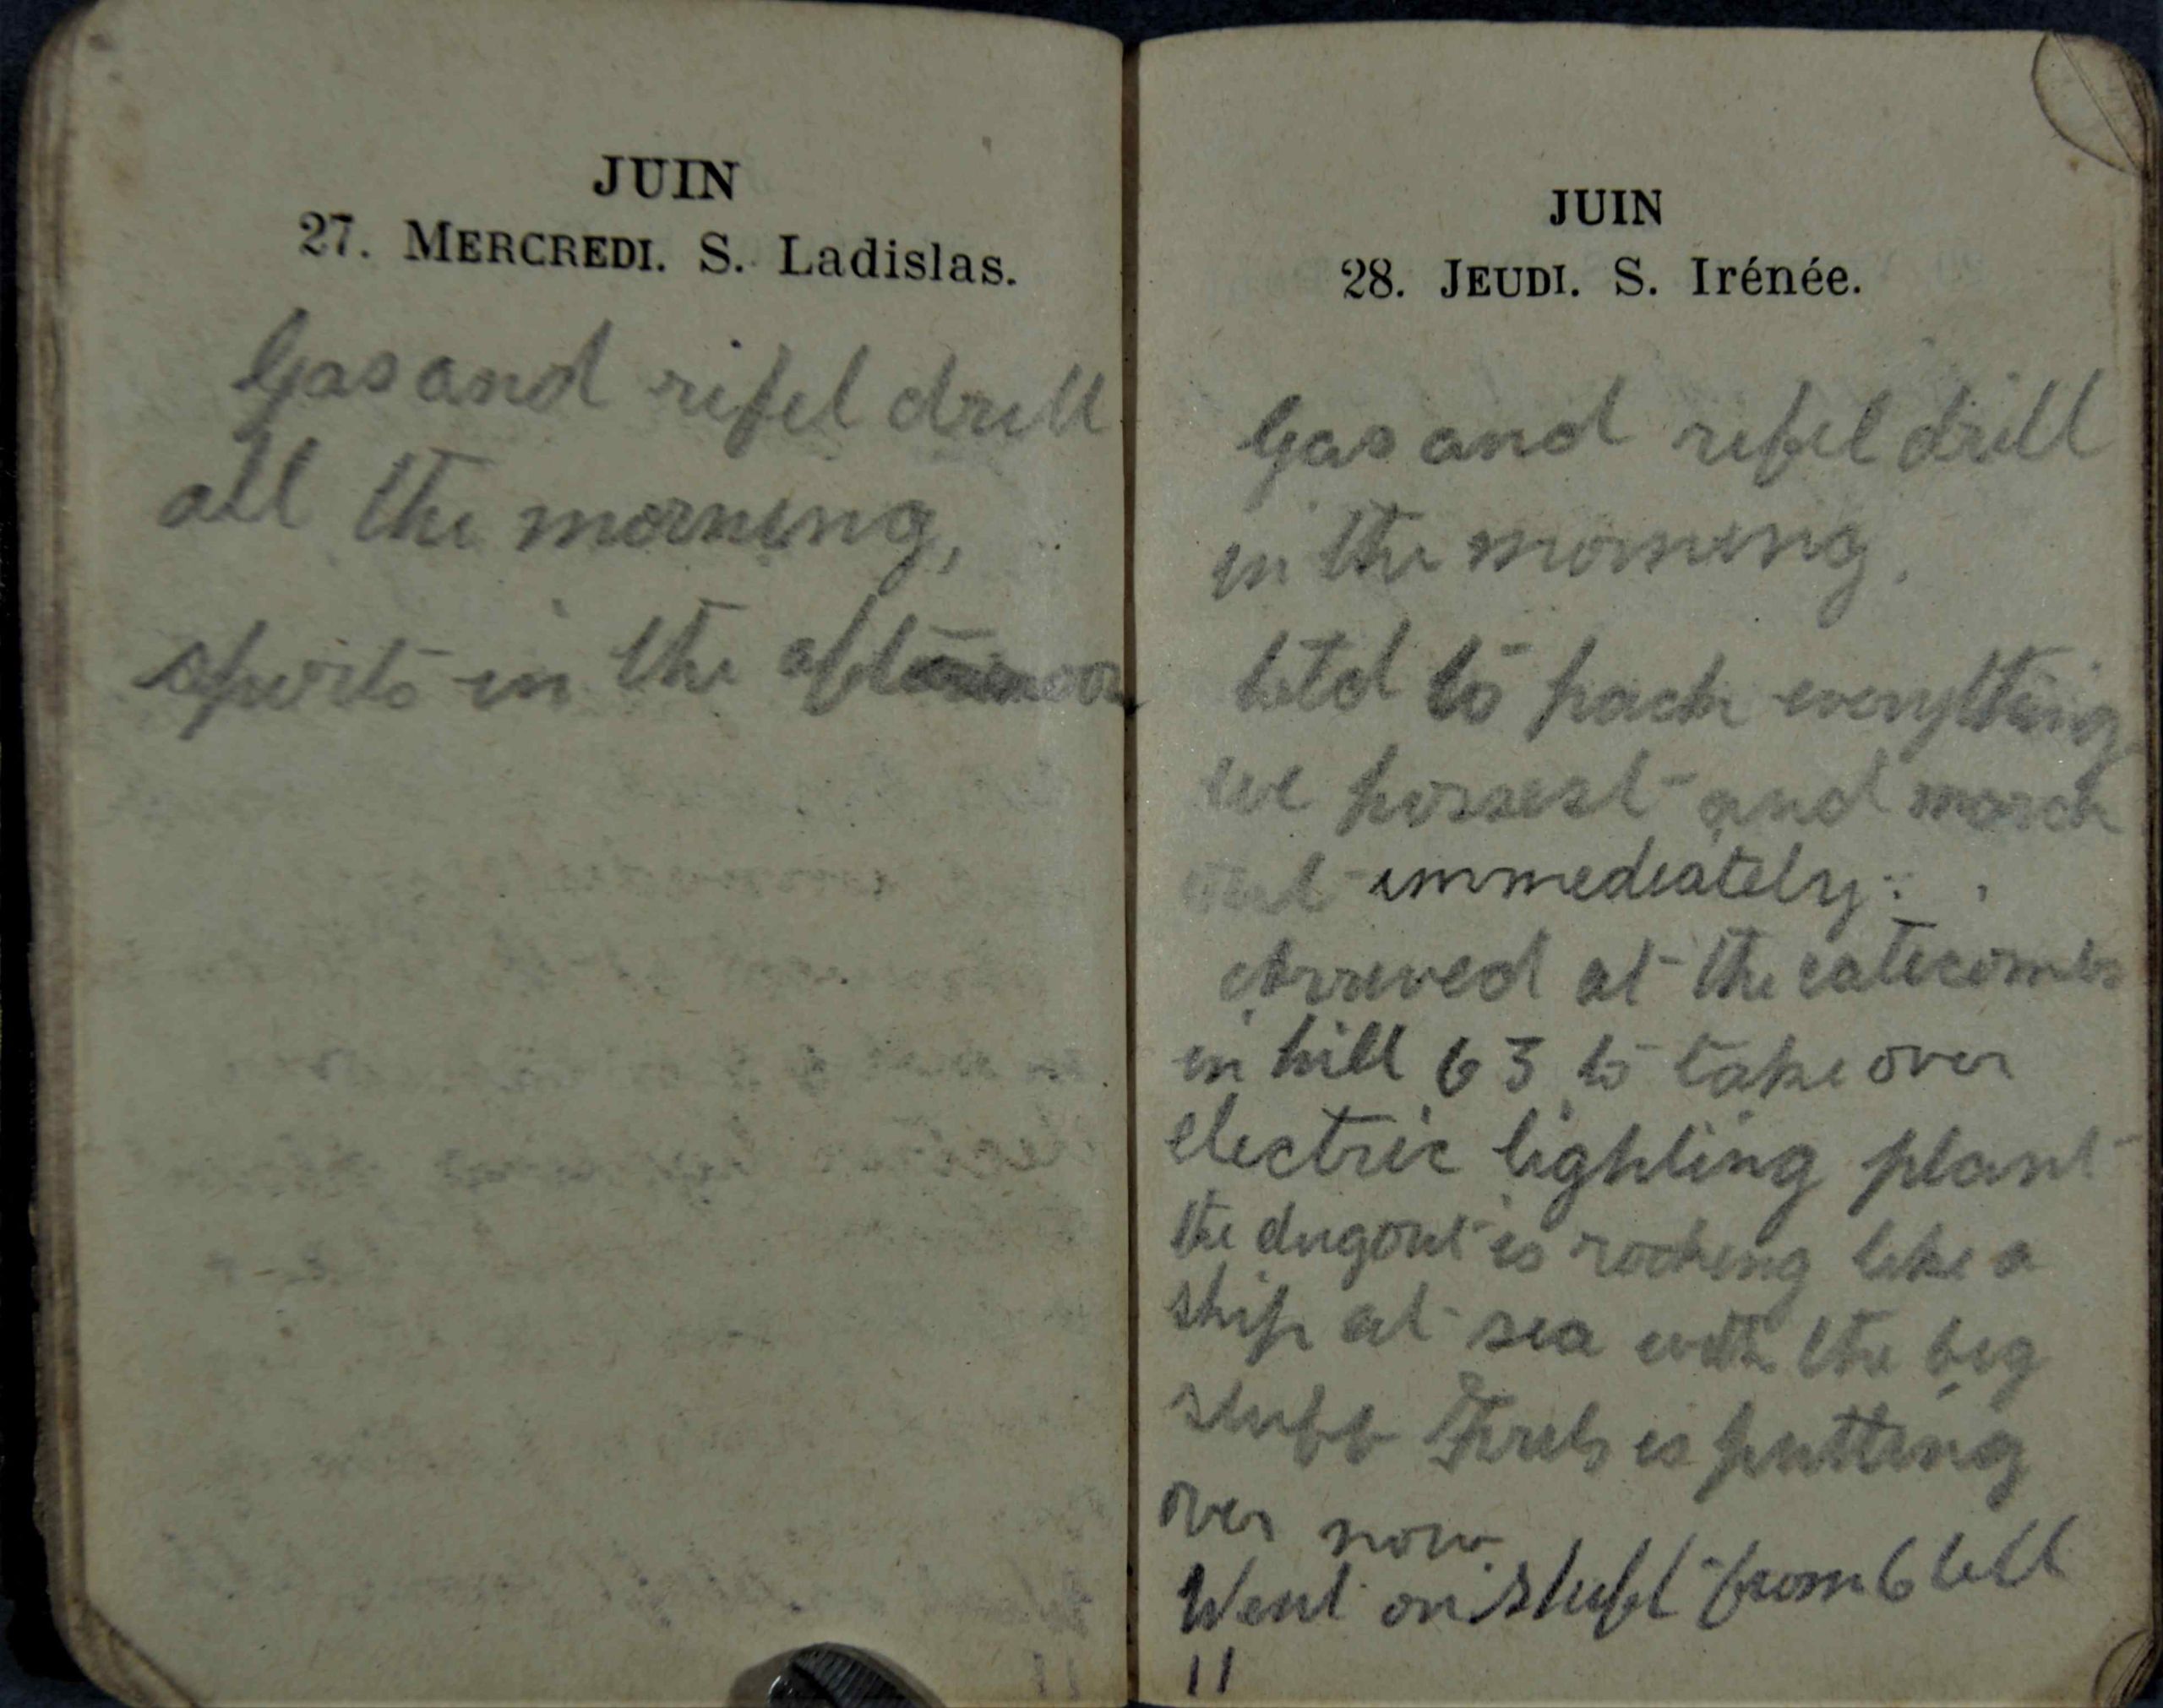 JUIN
27. MERCREDI. S. Ladislas.
Gas and rifel drill
all the morning,
sports in the afternoon
JUIN
28. JEUDI. S. Irénée.
Gas and rifel drill
in the morning.
told to pack everything
we possest and march
out immediately.
Arrived at the catecombs
in hill 63 to take over
electric lighting plant
the dugout is rocking like a
ship at sea with the big
stuff Fritz is putting
over now.
Went on shift from 6 till
11